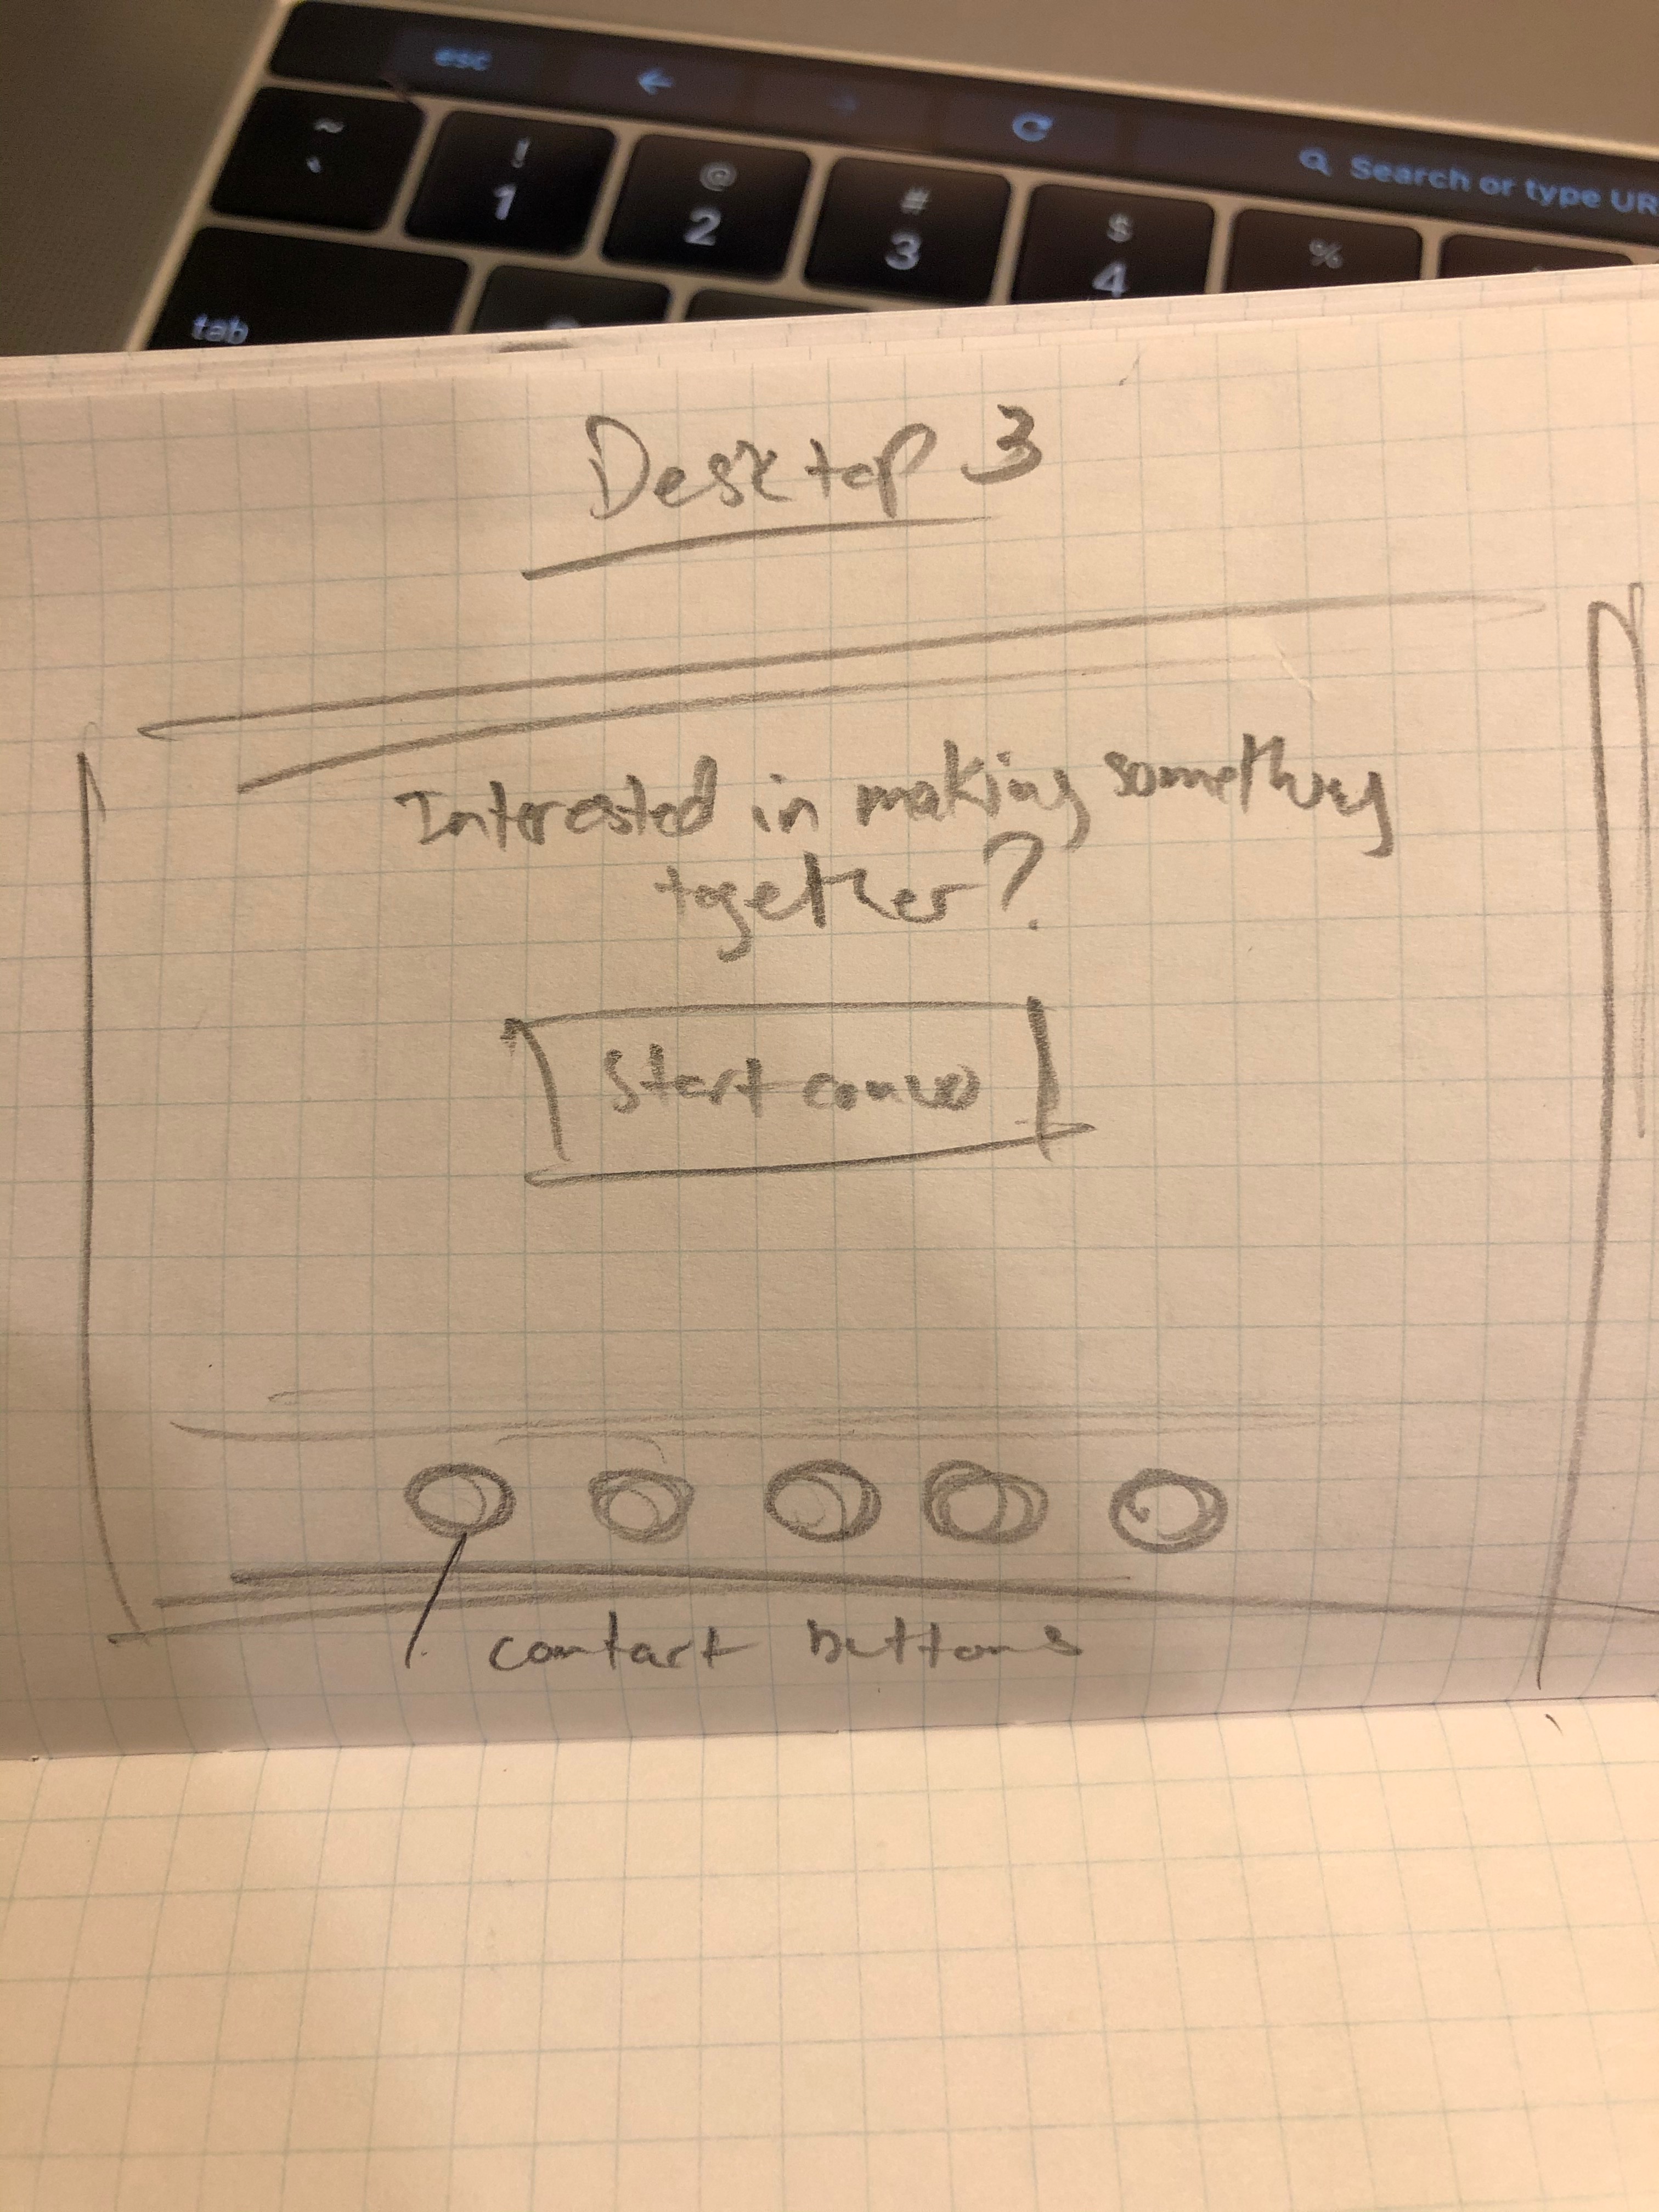 esc
Search or type UR
~
`
!
1
@
2
#
3
$
4
%
tab
Desktop 3
Interested in making something
together?
Start convo
contact buttons